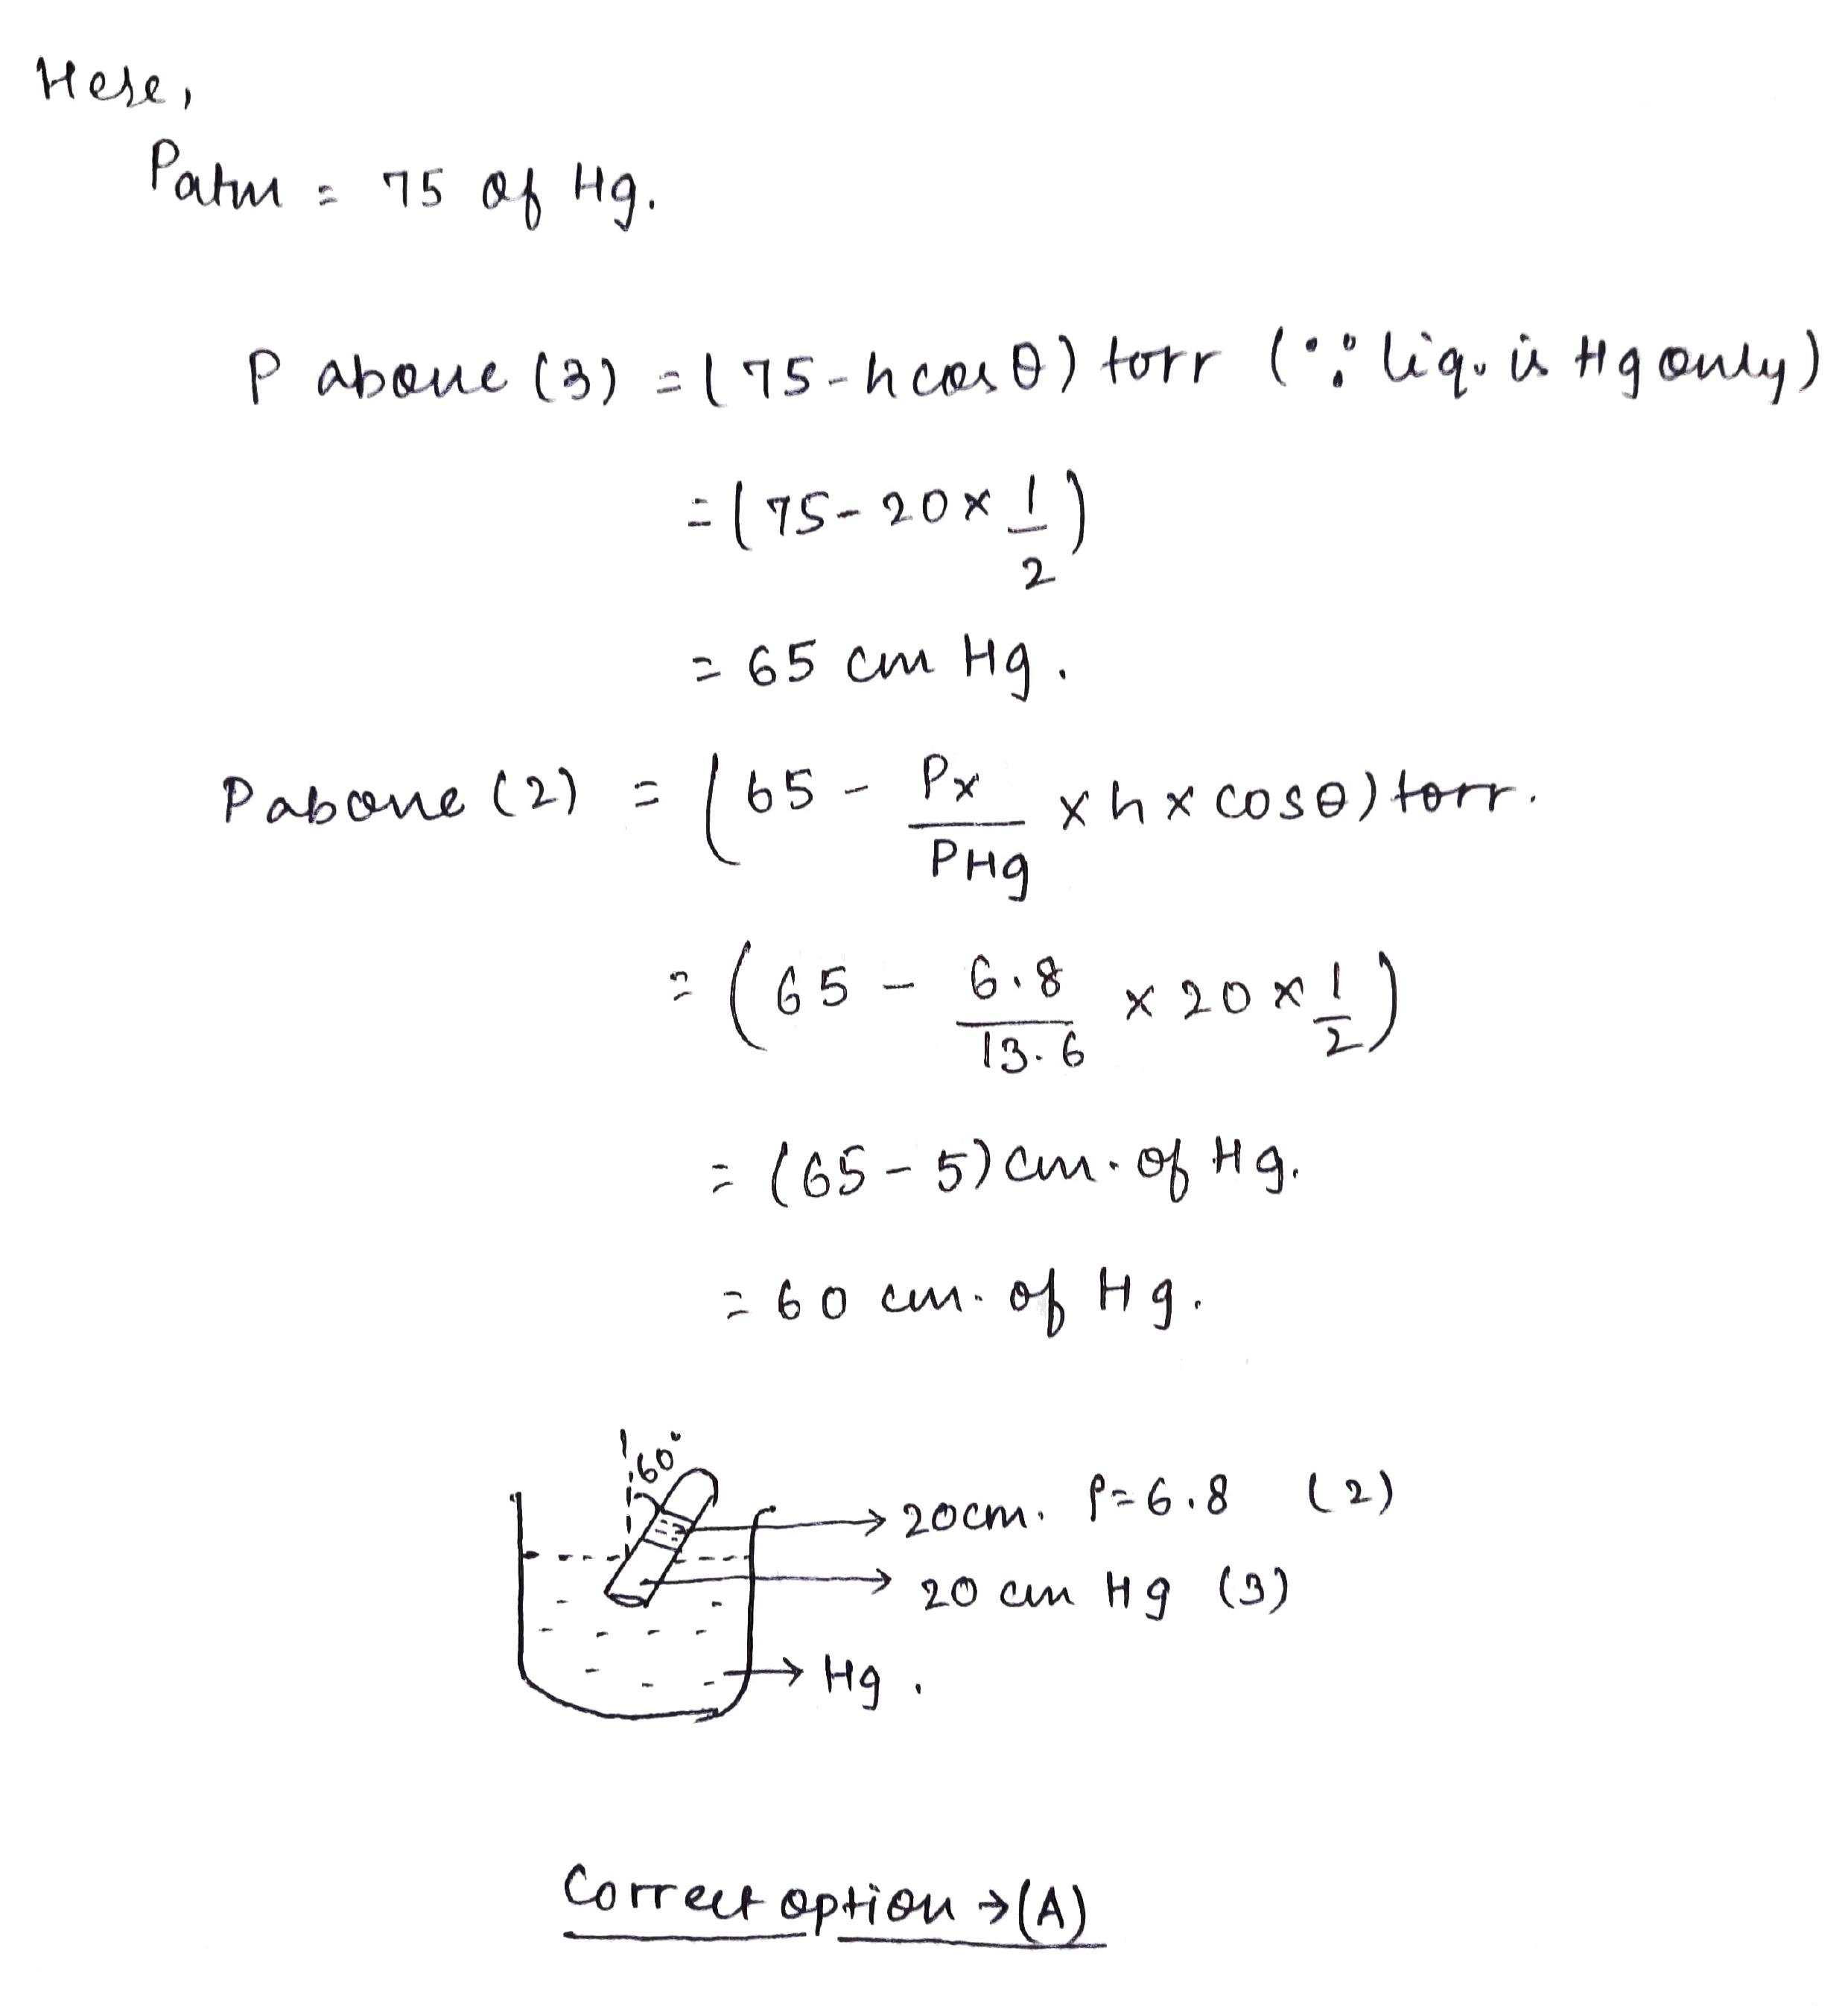 Here,
Patm = 75 of Hg.
P above (3) = (75-h cos θ) torr (∵ liq. is Hg only)
= (75-20×1/2)
= 65 cm Hg.
P above (2) = (65 - Px/PHg × h × cosθ) torr.
= (65 - 6.8/13.6 × 20 × 1/2)
= (65-5) cm. of Hg.
= 60 cm. of Hg.
60°
20cm. ρ=6.8 (2)
20 cm Hg (3)
Hg.
Correct option → (A)